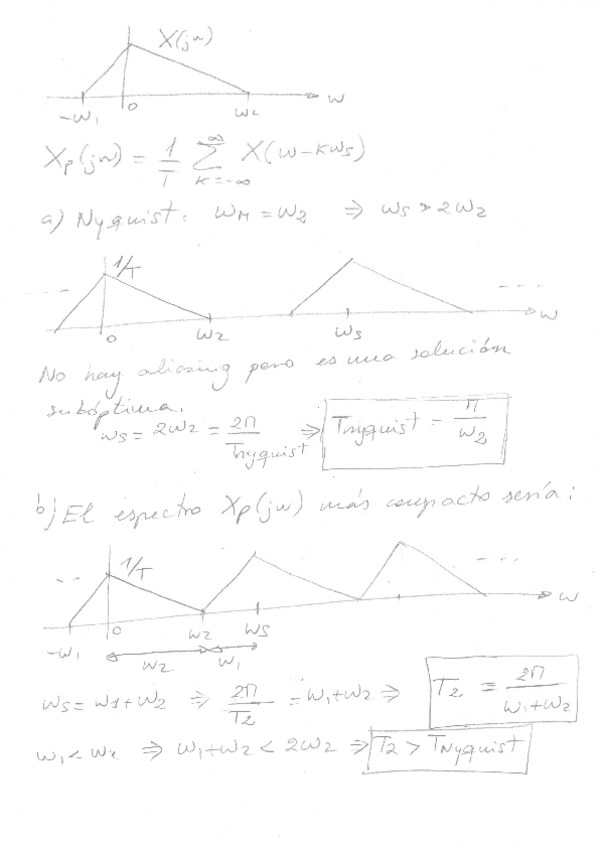 X(jω)
-ω₁ 0 ω₂ ω
Xp(jω) = 1/T ∑_{K=-∞}^{∞} X(ω-Kωs)
a) Nyquist: ω_M = ω₂ ⇒ ωs > 2ω₂
--- 1/T ---
0 ω₂ ωs ω
No hay aliasing pero es una solución
subóptima.
ωs = 2ω₂ = 2π/Tnyquist ⇒ Tnyquist = π/ω₂
b) El espectro Xp(jω) más compacto sería:
-- 1/T ---
-ω₁ 0 ω₂ ωs ω
ω₂ ω₁
ωs = ω1+ω₂ ⇒ 2π/T₂ = ω₁+ω₂ ⇒ T₂ = 2π/(ω₁+ω₂)
ω₁ < ω₂ ⇒ ω₁+ω₂ < 2ω₂ ⇒ T₂ > TNyquist